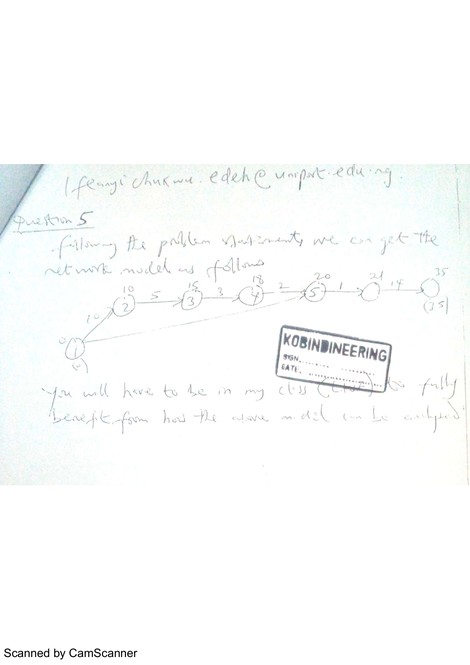 Ifeanyichukwu.edeh@uniport.edu.ng.
Question 5
following the problem statements, we can get the
network model as follows
10 15 18 20 21 35
10 2 5 3 3 4 2 5 1 14
0 1 (35)
KOBINDINEERING
SIGN..........
DATE..........
You will have to be in my class to fully
benefit from how the above model can be
Scanned by CamScanner